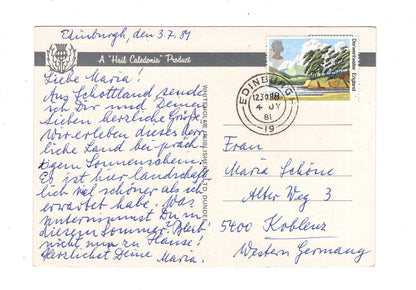 Edinburgh, den 3.7.81
A "Hail Caledonia" Product
Liebe Maria!
Aus Schottland sende
ich Dir und Deinen
Lieben herzliche Grüße.
Wir erleben dieses herr-
liche Land bei präch-
tigem Sonnenschein.
Es ist hier landschaft-
lich viel schöner als ich
erwartet habe. Was
unternimmst Du in
diesem Sommer? Bleibt
nicht nur zu Hause!
Herzlichst Deine Maria.
WHITEHOLME (PUBLISHERS) LTD. DUNDEE
Derwentwater, England
EDINBURGH
12.30PM
4 JY
81
19
Frau
Maria Schöne
Alter Weg 3
5400 Koblenz
Western Germany